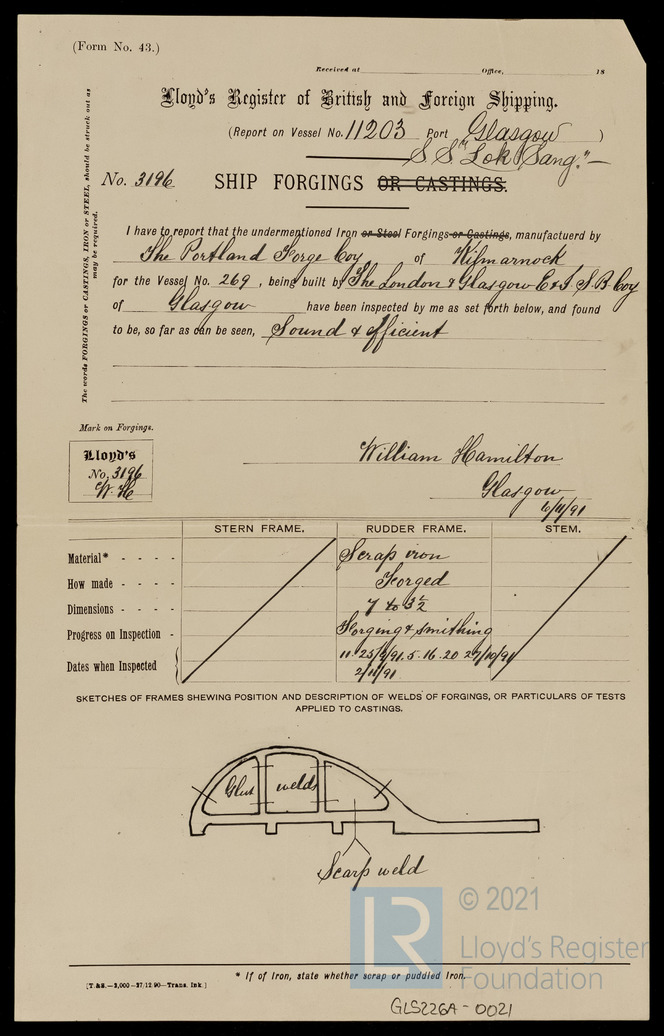 (Form No. 43.)
Received at Office, 18
Lloyd's Register of British and Foreign Shipping.
(Report on Vessel No. 11203 Port Glasgow )
S.S. "Lok Sang."
No. 3196 SHIP FORGINGS OR CASTINGS.
The words FORGINGS or CASTINGS, IRON or STEEL, should be struck out as
may be required.
I have to report that the undermentioned Iron or Steel Forgings or Castings, manufactuerd by
The Portland Forge Coy of Kilmarnock
for the Vessel No. 269, being built by The London & Glasgow E & I S.B. Coy
of Glasgow have been inspected by me as set forth below, and found
to be, so far as can be seen, Sound & efficient
Mark on Forgings.
Lloyd's
No. 3196
W. H
William Hamilton
Glasgow
STERN FRAME. RUDDER FRAME. STEM.
Material* - - - - Scrap iron
How made - - - - Forged
Dimensions - - - - 7 to 3½
Progress on Inspection - Forging & smithing
Dates when Inspected 11. 25/9/91. 5. 16. 20 27/10/91
2/11/91
SKETCHES OF FRAMES SHEWING POSITION AND DESCRIPTION OF WELDS OF FORGINGS, OR PARTICULARS OF TESTS
APPLIED TO CASTINGS.
Glut welds
Scarp weld
© 2021
LR
Lloyd's Register
Foundation
* If of Iron, state whether scrap or puddled Iron.
[T.&S.—2,000—27/12/90—Trans. Ink.]
GLS226A-0021